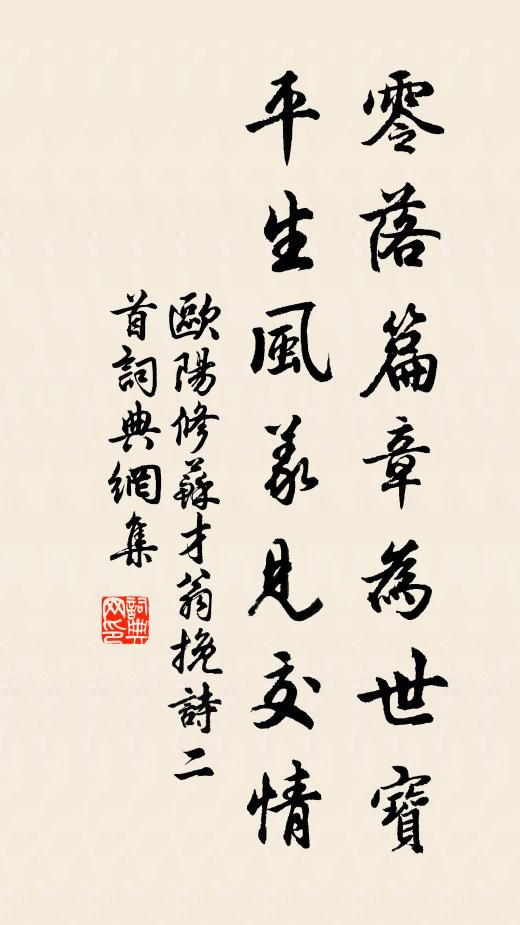 零落篇章為世寶
平生風義見交情
歐陽修蘇才翁挽詩二
首詞典網集
詞典
网印